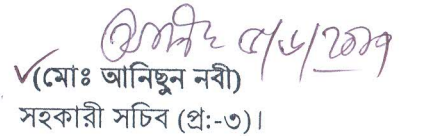 ৫/৬/২০১৭
(মোঃ আনিছুন নবী)
সহকারী সচিব (প্র:-৩)।